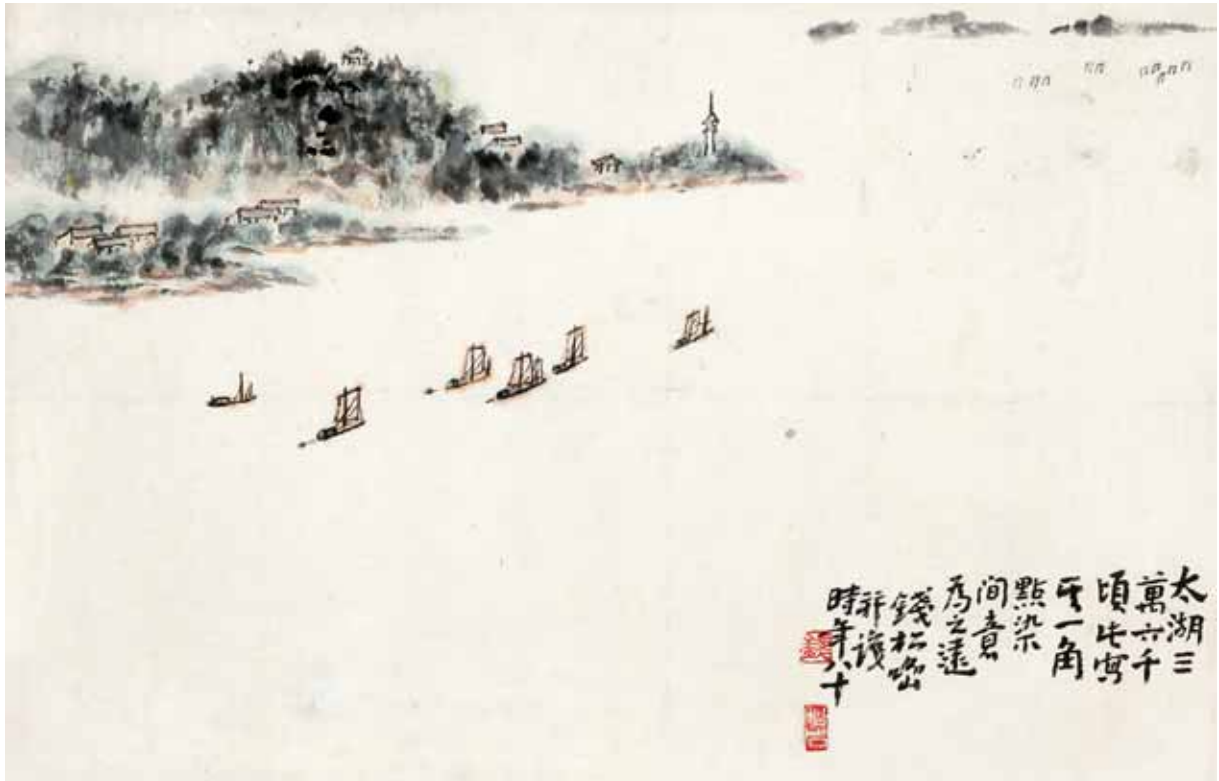 太湖三
萬六千
頃此寫
其一角
點染
间意
為之遠
錢松喦
并識
時年八十